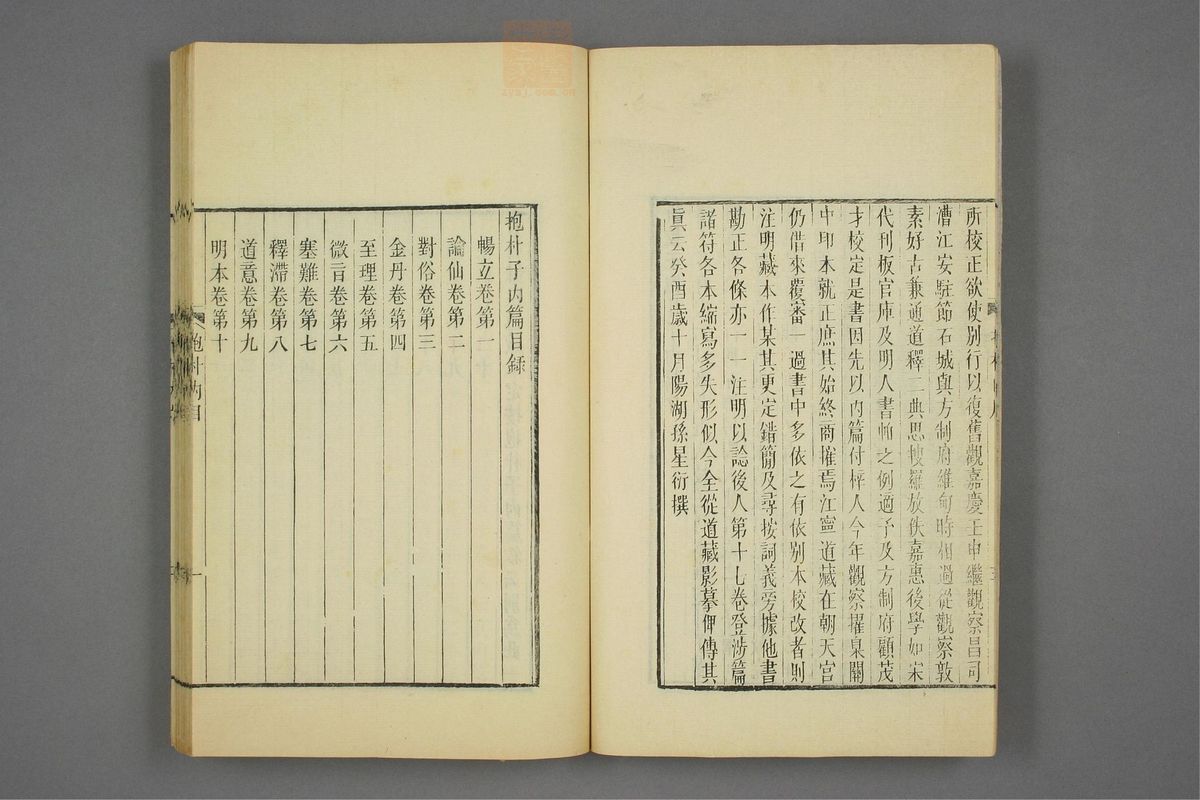 所校正欲使別行以復舊觀嘉慶壬申繼觀察昌司
漕江安駐節石城與方制府維甸時相過從觀察敦
素好古兼通道釋二典思摟羅放佚嘉惠後學如宋
代刊板官庫及明人書帕之例適予及方制府顧茂
才校定是書因先以內篇付梓人今年觀察擢臬關
中印本就正庶其始終商搉焉江寧道藏在朝天宮
仍借來覆審一過書中多依之有依別本校改者則
注明藏本作某其更定錯簡及尋按詞義旁據他書
勘正各條亦一一注明以諗後人第十七卷登涉篇
諸符各本縮寫多失形似今全從道藏影摹俾傳其
眞云癸酉歲十月陽湖孫星衍撰
抱朴子內篇目録
暢立卷第一
論仙卷第二
對俗卷第三
金丹卷第四
至理卷第五
微旨卷第六
塞難卷第七
釋滯卷第八
道意卷第九
明本卷第十
抱朴內目
一